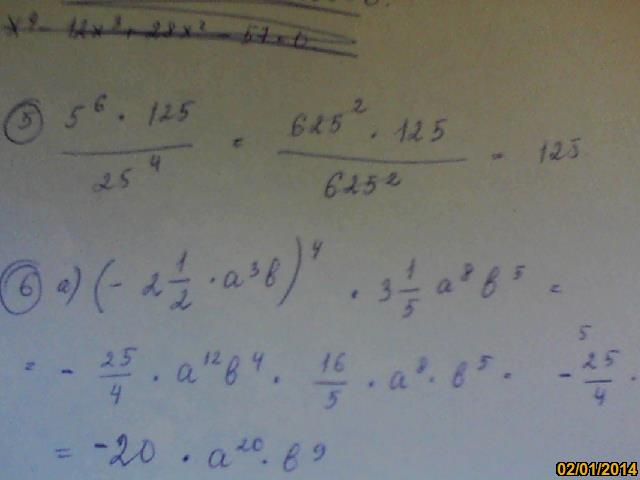 ⑤ 5⁶ · 125 / 25⁴ = 625² · 125 / 625² = 125
⑥ а) (- 2 1/2 · a³b)⁴ · 3 1/5 a⁸ b⁵ =
= - 25/4 · a¹² b⁴ · 16/5 · a⁸ · b⁵ = - 25/4 ·
5
= -20 · a²⁰ · b⁹
02/01/2014